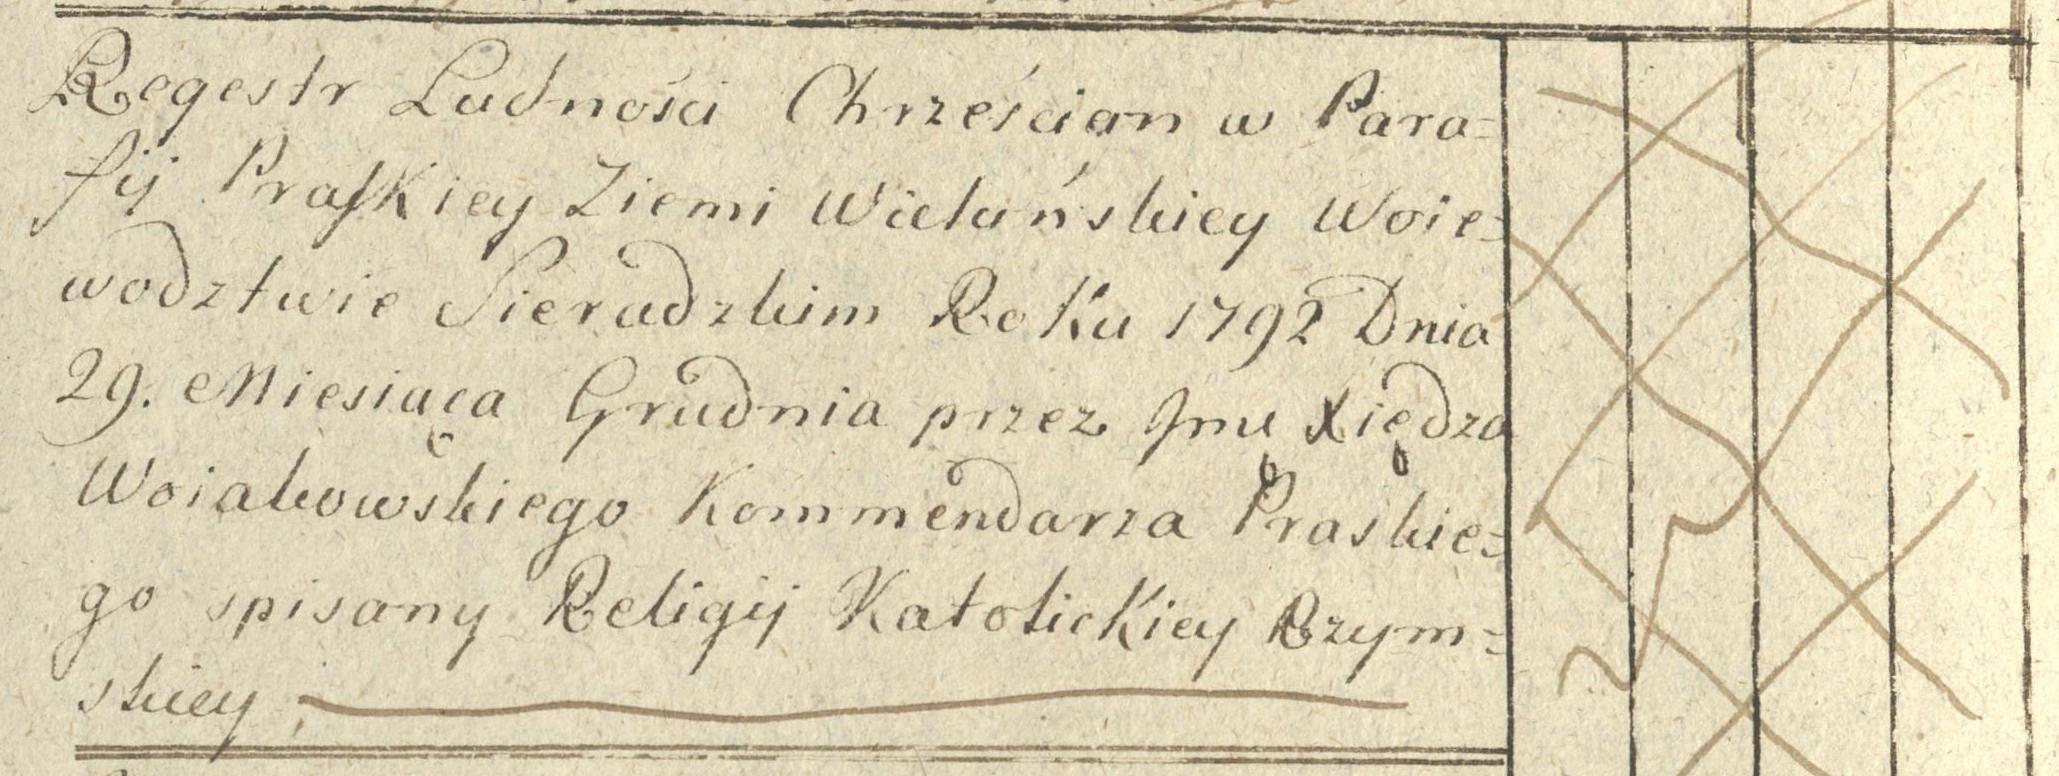 Regestr Ludności Chrześcian w Para=
fij Praskiey Ziemi Wieluńskiey Woie=
wodztwie Sieradzkim Roku 1792 Dnia
29. Miesiąca Grudnia przez Jmć Xiędza
Woiakowskiego Kommendarza Praskie=
go spisany Religij Katolickiey Rzym=
skiey